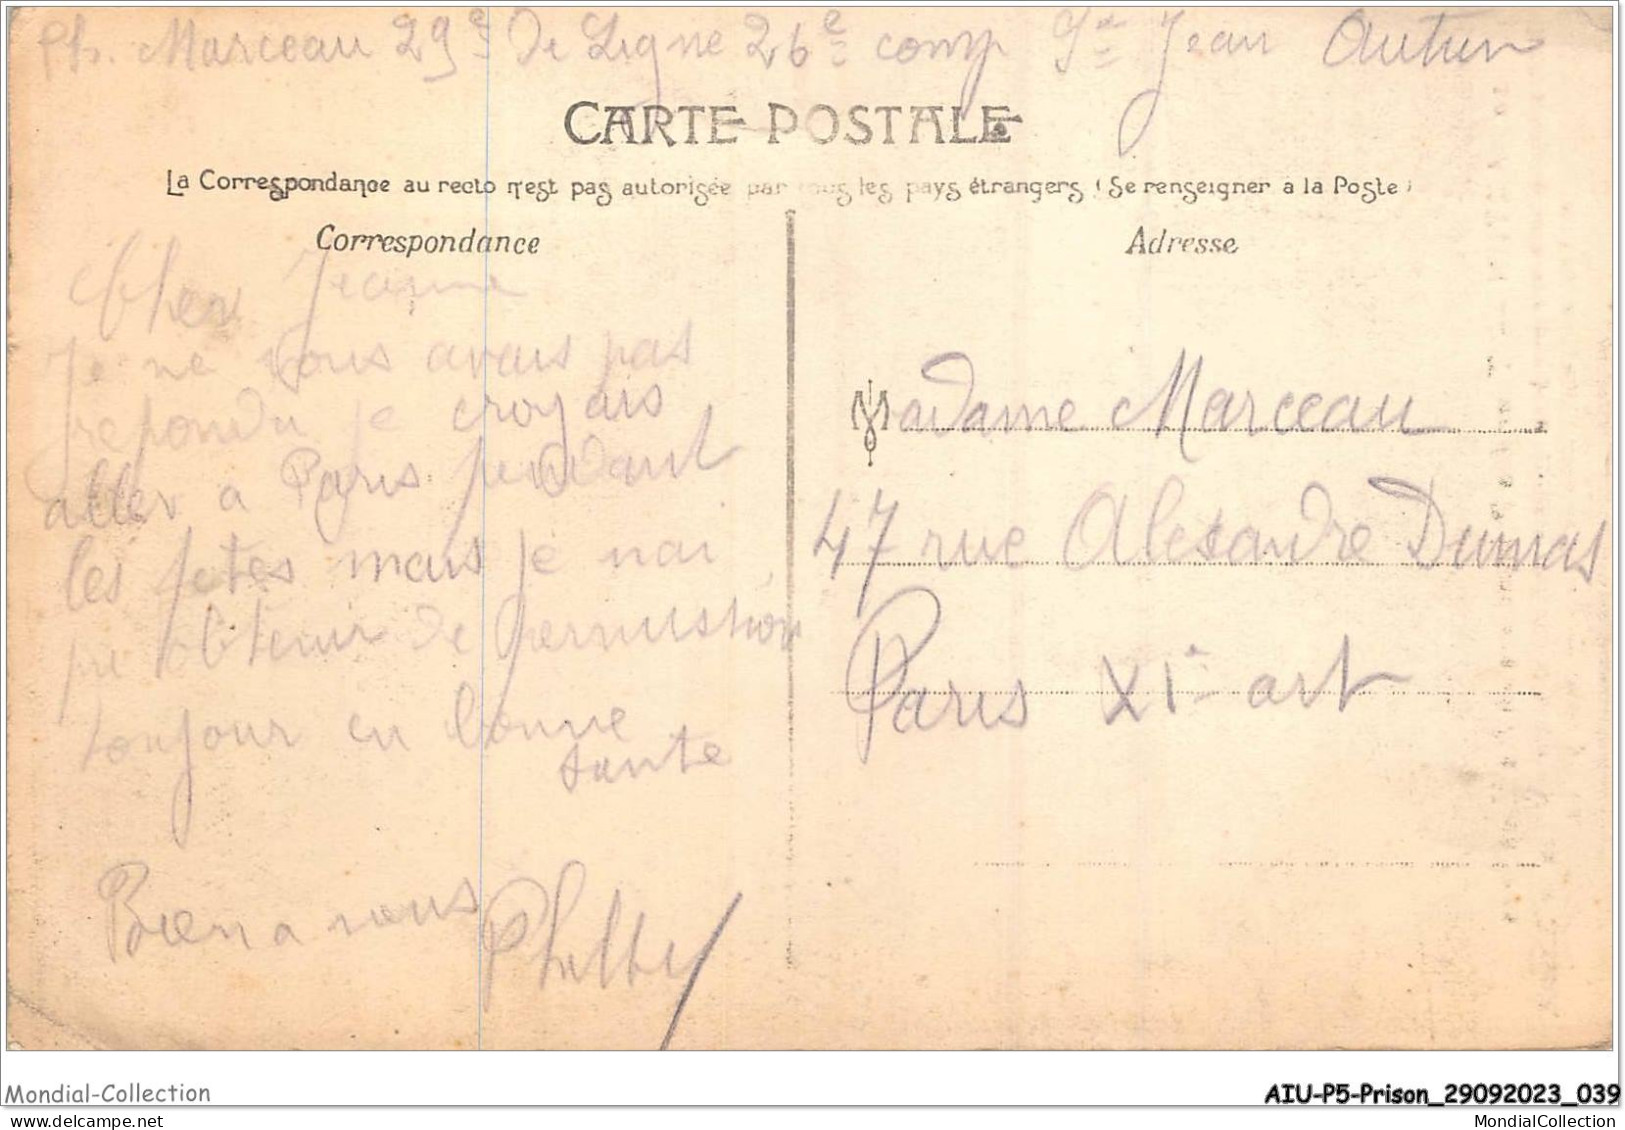 Ph. Marceau 29e de Ligne 26e comp St Jean Autun
CARTE POSTALE
La Correspondance au recto n'est pas autorisée par tous les pays étrangers (Se renseigner a la Poste)
Correspondance
Adresse
Cher Jeanne
Je ne vous avais pas
repondu je croyais
aller a Paris pendant
les fetes mais je nai
pu obtenir de permission
toujour en bonne
sante
Bien a vous
Madame Marceau
47 rue Alexandre Dumas
Paris XIe art
Mondial-Collection
AIU-P5-Prison_29092023_039
MondialCollection